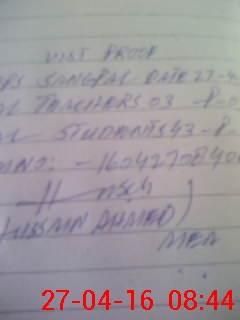 VIST PROOF
PS SANGPAL DATE 27-4
AL TEACHERS 03 - P-0
AL STUDENTS 43 - P-
DINO: - 160427084
HUSSAIN AHMED)
MEA
27-04-16 08:44